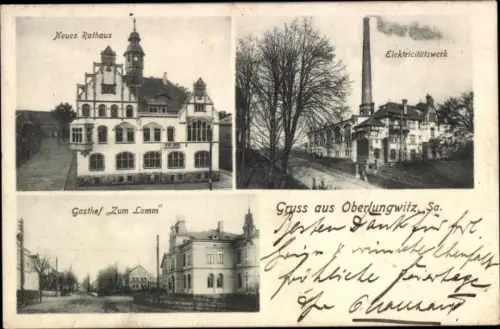 Neues Rathaus
Elektricitätswerk
Gasthof „Zum Lamm"
Gruss aus Oberlungwitz, Sa.
Besten Dank für frl.
wünsche ebenfalls
fröhliche Feiertage